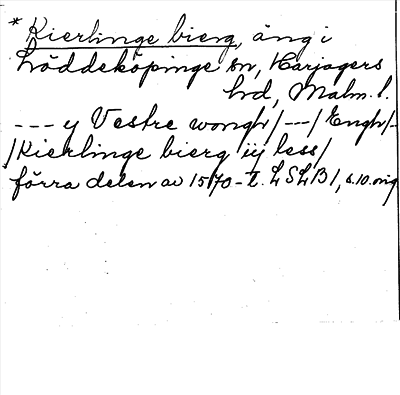 * Kierlinge bierg, äng i
Löddeköpinge sn, Harjagers
hd, Malm. l.
--- y Vestre wongh/---/Engh/--
/Kierlinge bierg iij less/
förra delen av 1570-t. LSLB1, s.10. orig